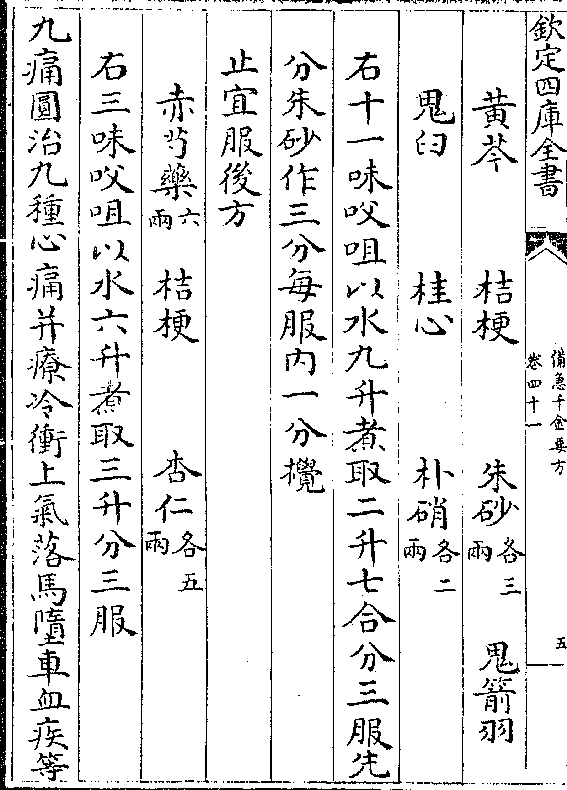 欽定四庫全書
備急千金要方
卷四十一
五
黄芩 桔梗 朱砂各三兩 鬼箭羽
鬼臼 桂心 朴硝各二兩
右十一味㕮咀以水九升煮取二升七合分三服先
分朱砂作三分每服内一分攪
止宜服後方
赤芍藥六兩 桔梗 杏仁各五兩
右三味㕮咀以水六升煮取三升分三服
九痛圓治九種心痛并療冷衝上氣落馬墮車血疾等